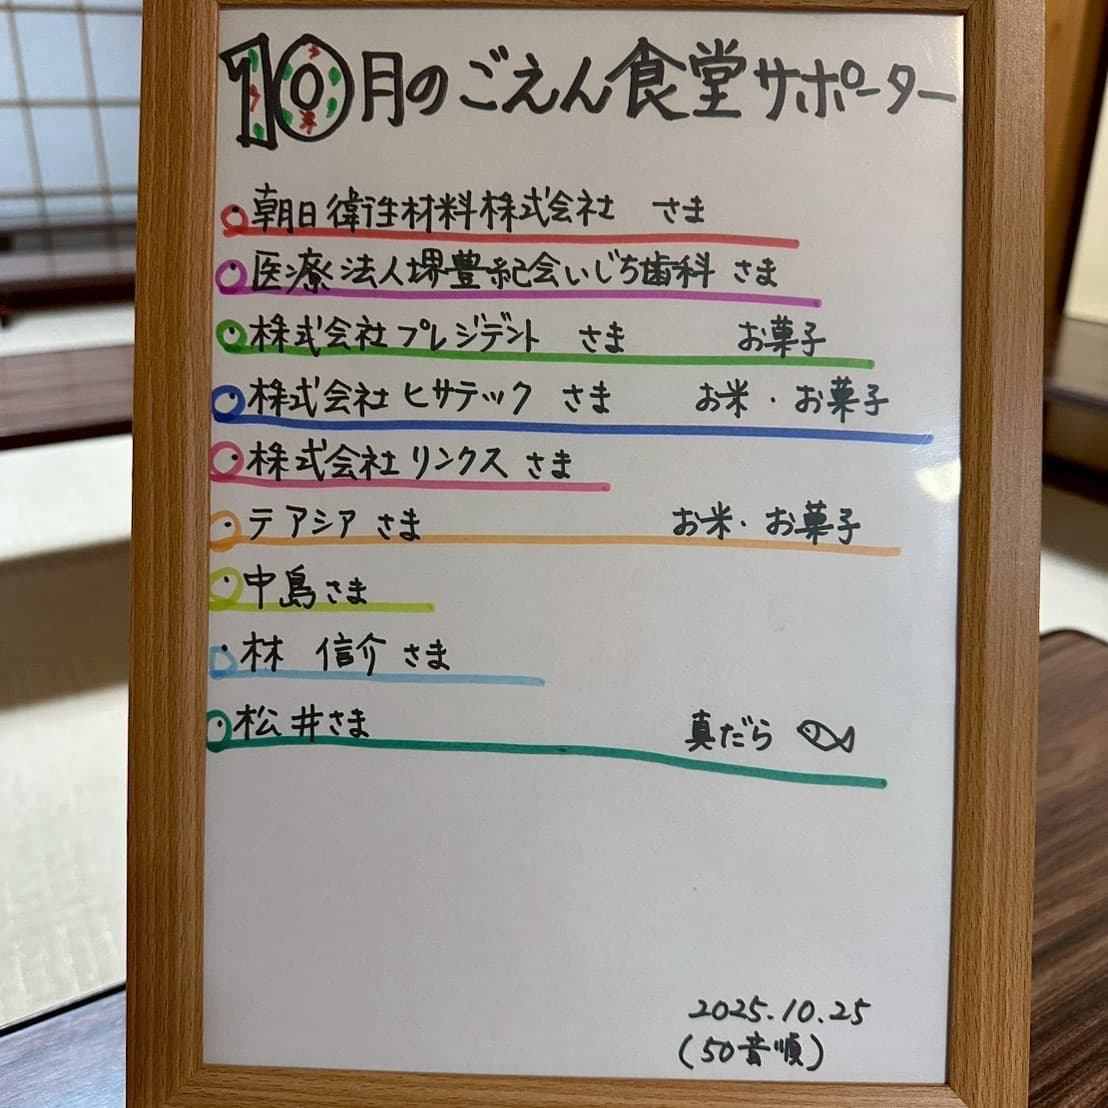 10月のごえん食堂サポーター
朝日衛生材料株式会社 さま
医療法人堺豊紀会いじち歯科 さま
株式会社プレジデント さま お菓子
株式会社ヒサテック さま お米・お菓子
株式会社リンクス さま
テアシア さま お米・お菓子
中島さま
林 信介 さま
松井さま 真だら
2025.10.25
(50音順)